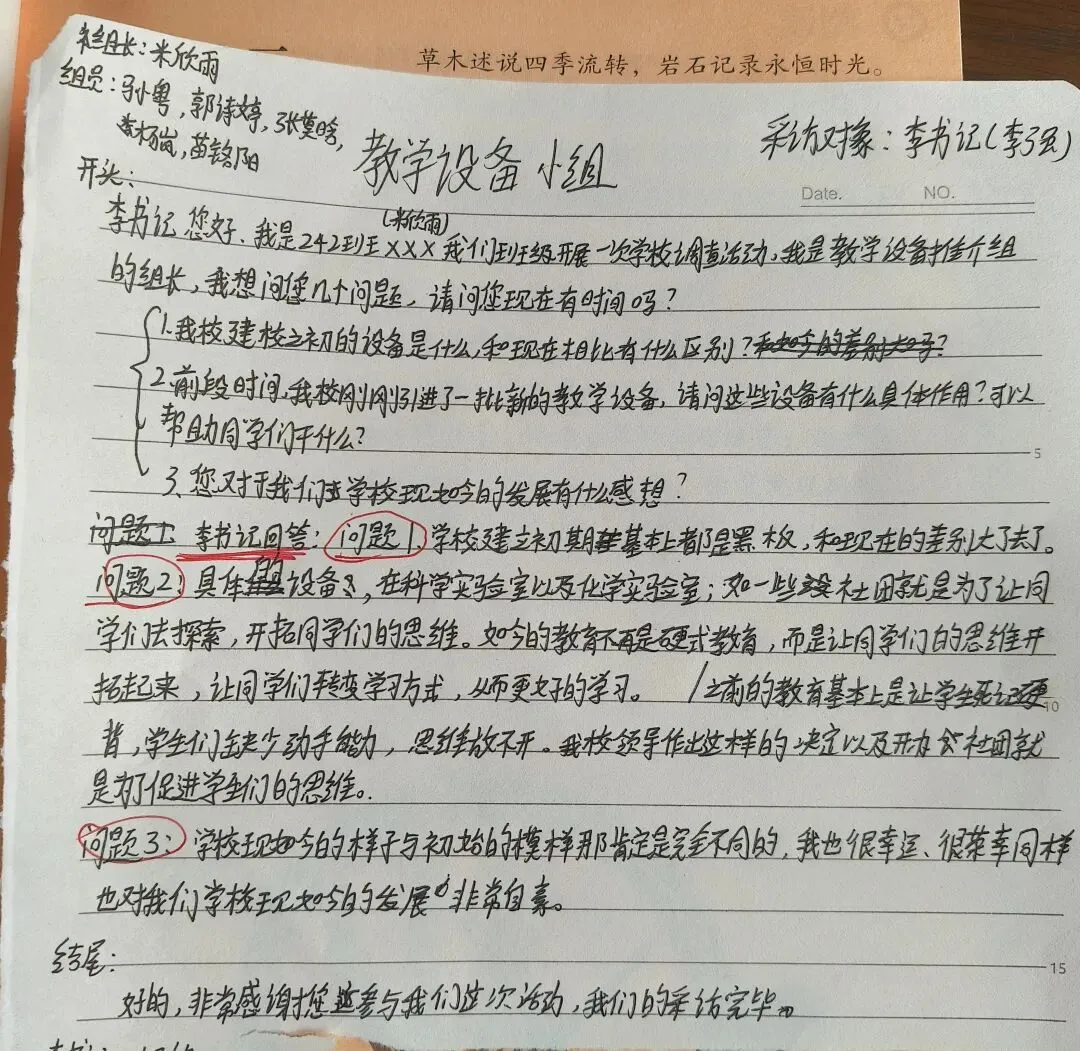 草木述说四季流转，岩石记录永恒时光。
组长：米欣雨
组员：孙小粤，郭诗婷，张昊晗，
杨岚，苗铭阳
教学设备小组
采访对象：李书记（李强）
Date. NO.
开头：
(米欣雨)
李书记您好、我是242班班×××我们班班级开展一次学校调查活动，我是教学设备推介组
的组长，我想问您几个问题，请问您现在有时间吗？
1.我校建校之初的设备是什么，和现在相比有什么区别？和如今的差别大吗？
2.前段时间，我校刚刚引进了一批新的教学设备，请问这些设备有什么具体作用？可以
帮助同学们干什么？
5
3、您对于我们学校现如今的发展有什么感想？
问题1. 李书记回答：问题1.学校建立初期基本上都是黑板，和现在的差别大了去了。
问题2：具体的设备，在科学实验室以及化学实验室；如一些社团就是为了让同
学们去探索，开拓同学们的思维。如今的教育不再是硬式教育，而是让同学们的思维开
拓起来，让同学们转变学习方式，从而更好的学习。/之前的教育基本上是让学生死记硬
10
背，学生们缺少动手能力，思维放不开。我校领导作出这样的决定以及开办社团就
是为了促进学生们的思维。
问题3：学校现如今的样子与初始的模样那肯定是完全不同的，我也很幸运、很荣幸同样
也对我们学校现如今的发展非常自豪。
结尾：
15
好的，非常感谢您参与我们这次活动，我们的采访完毕。